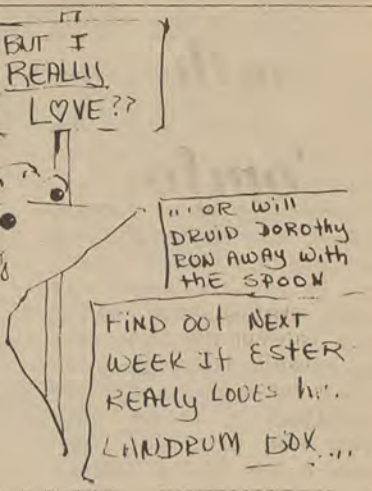 BUT I
REALLY
LOVE??
... OR Will
DRUID DOROthy
RUN AWAY with
thE SPOON
FiND OUt NEXT
WEEK If EStER
REALLy LOVES
LANDRUM BOX....